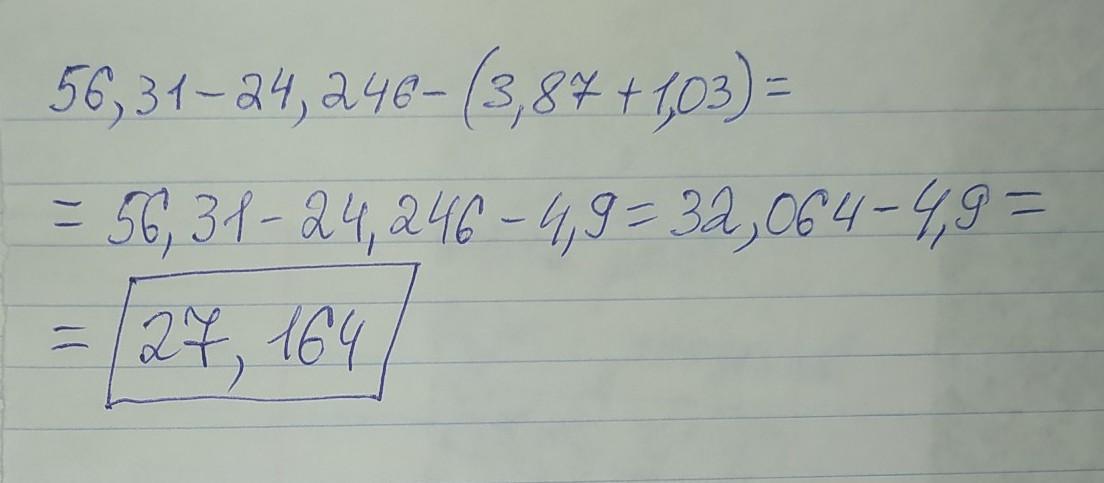 56,31-24,246-(3,87+1,03)=
=56,31-24,246-4,9=32,064-4,9=
=27,164